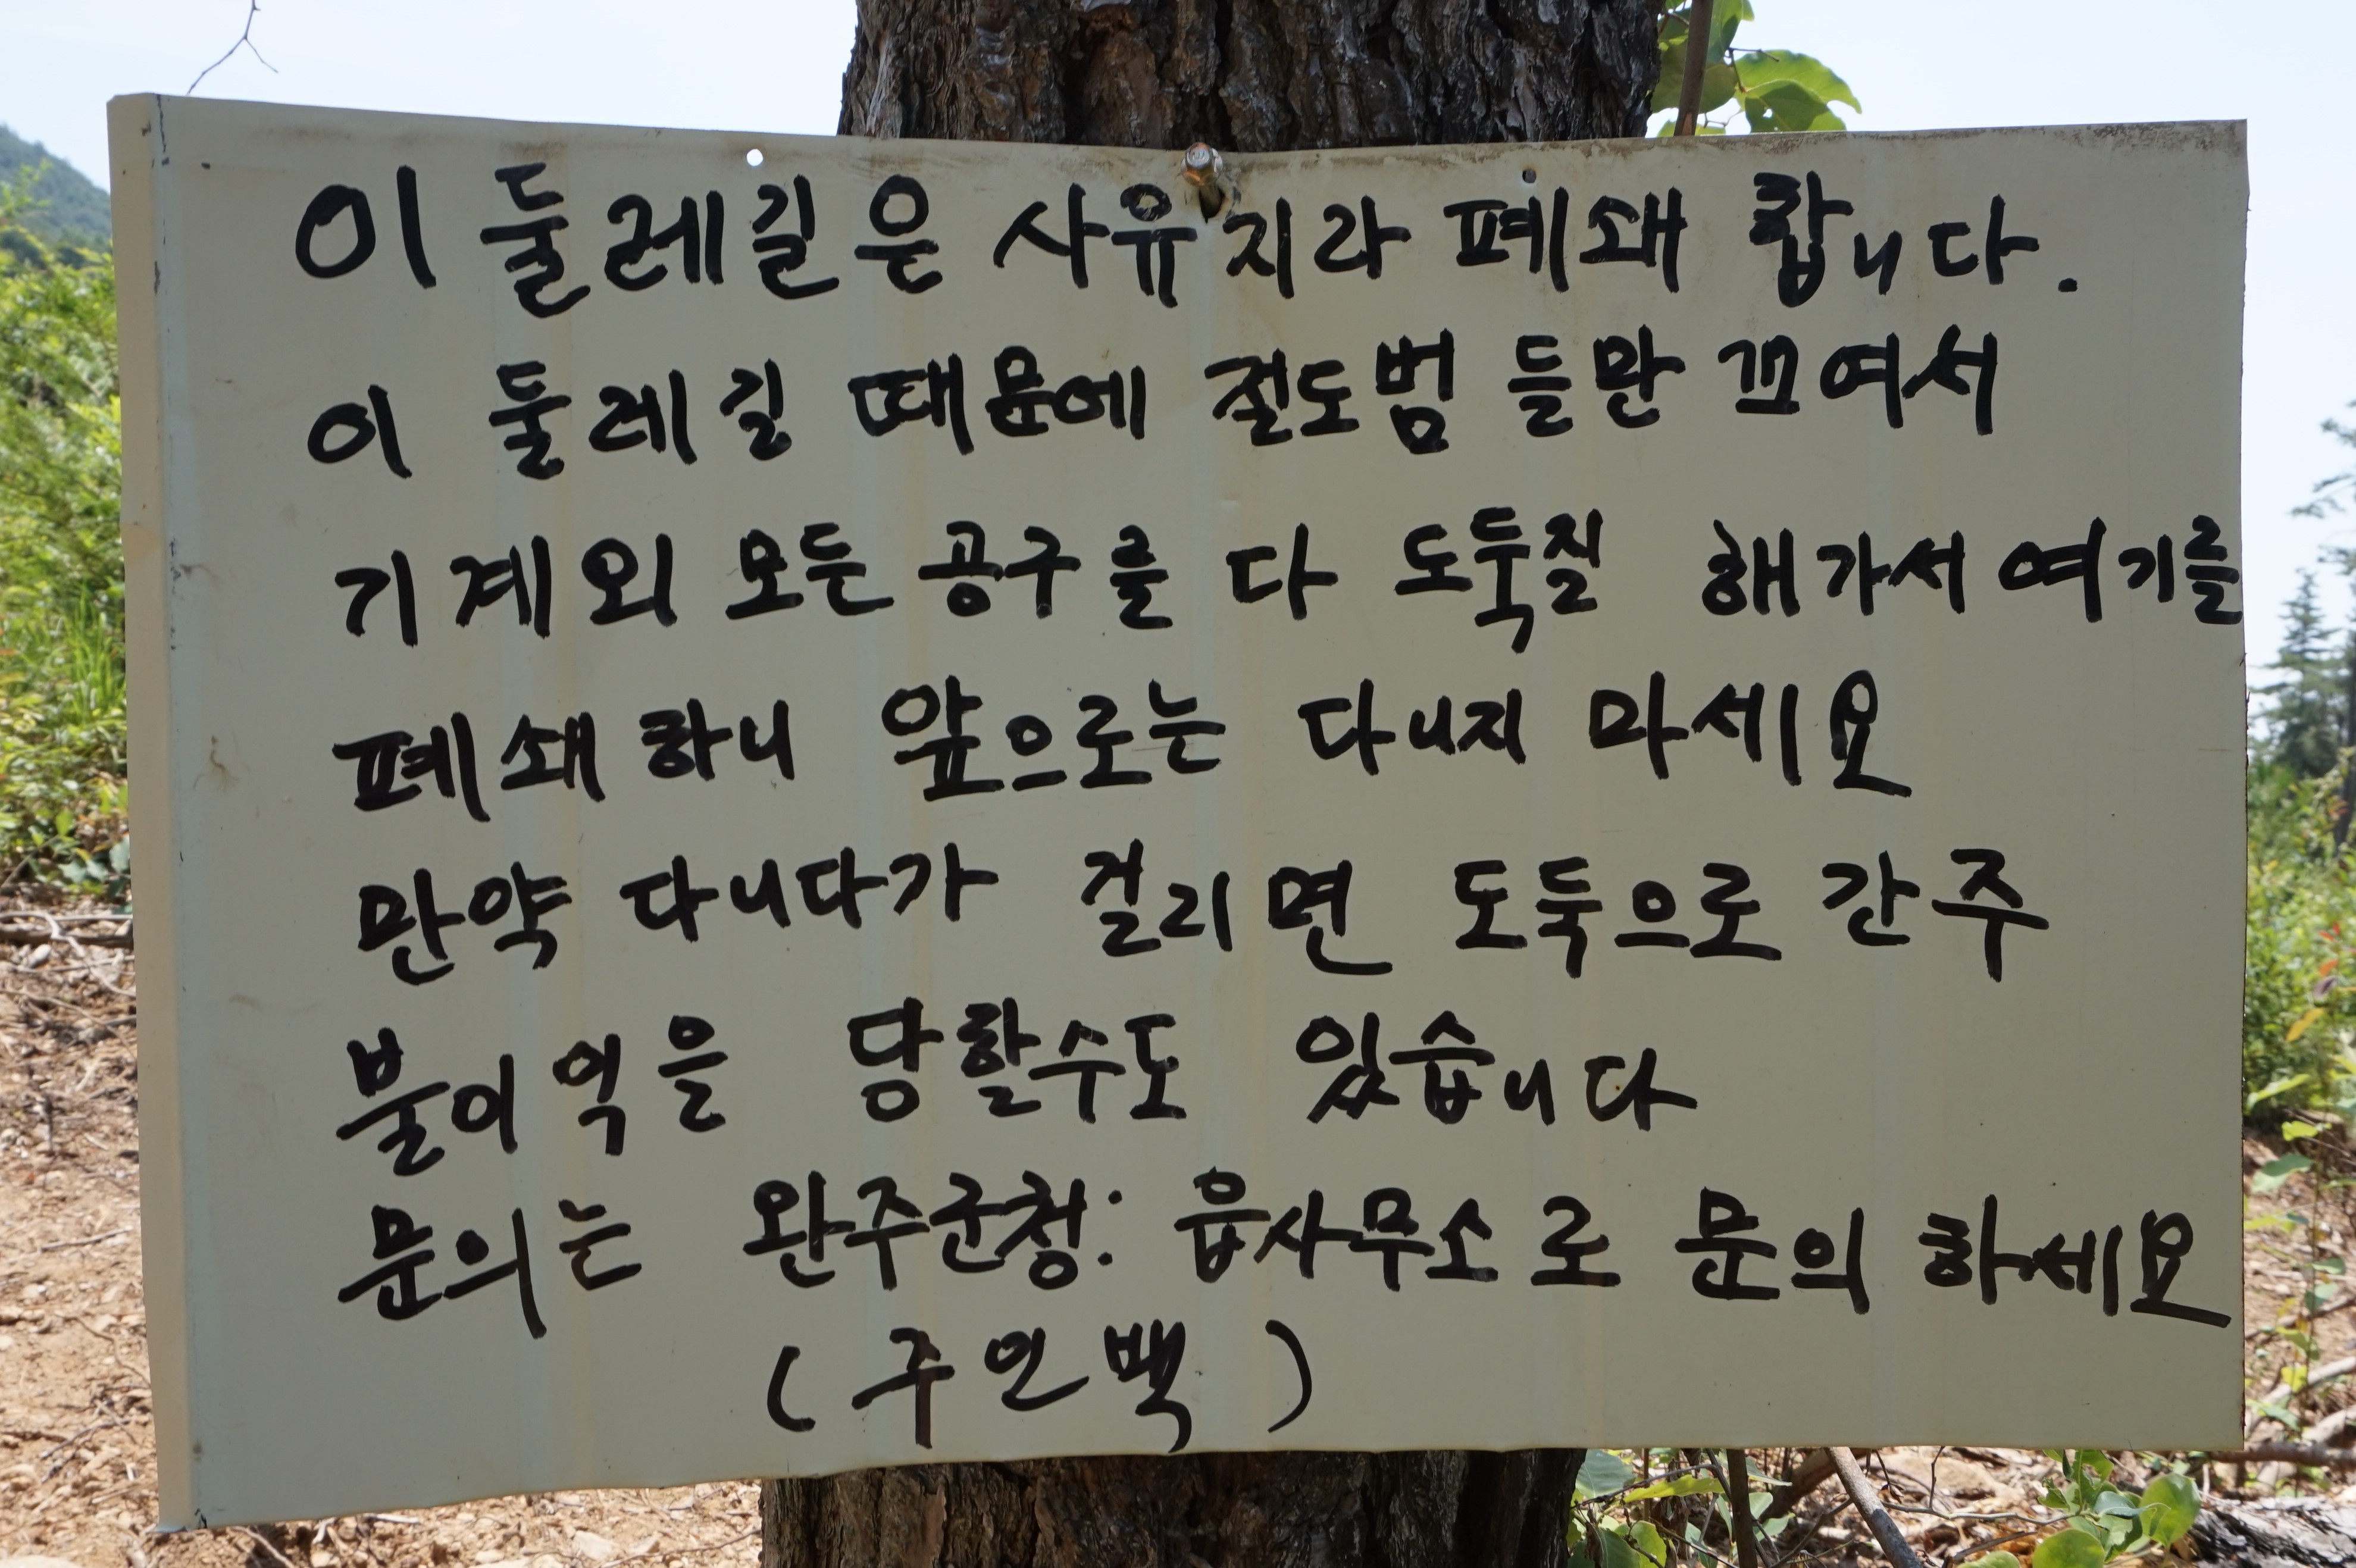 이 둘레길은 사유지라 폐쇄 합니다.
이 둘레길 때문에 절도범 들만 끄여서
기계외 모든 공구를 다 도둑질 해가서 여기를
폐쇄하니 앞으로는 다니지 마세요
만약 다니다가 걸리면 도둑으로 간주
불이익을 당할수도 있습니다
문의는 완주군청: 읍사무소로 문의 하세요
(주인백)